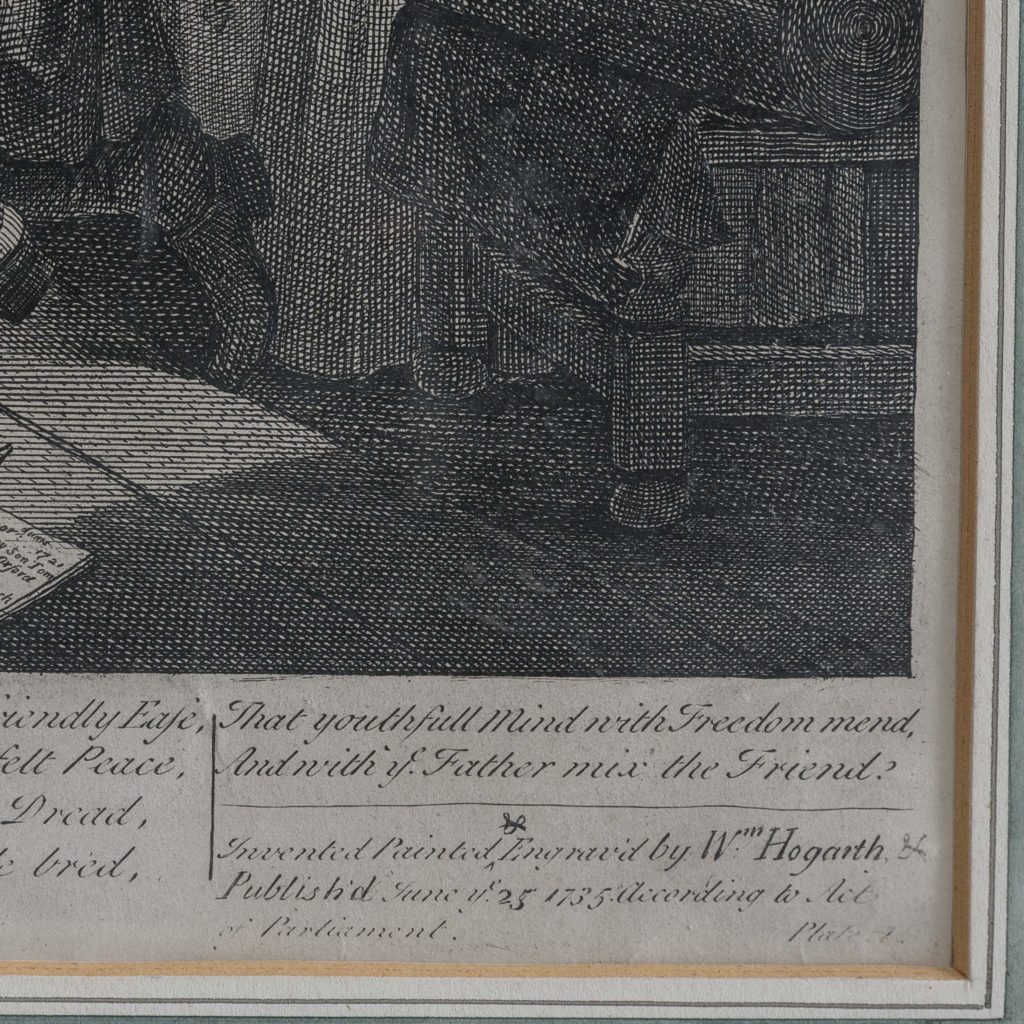 dume
1721
my Son Tom
Oxford
riendly Ease,
felt Peace,
Dread,
bred,
That youthfull Mind with Freedom mend,
And with yͤ. Father mix the Friend?
&
Invented Painted, Engrav'd by Wᵐ. Hogarth, &
Publish'd June yͤ. 25 1735. According to Act
of Parliament. Plate 1.